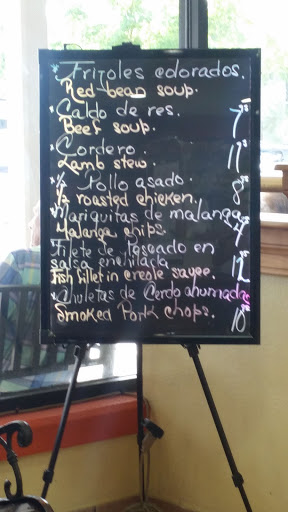 * Frijoles colorados.
Red bean soup.
* Caldo de res. 7
Beef soup.
* Cordero. 11
Lamb stew.
* ½ Pollo asado. 8
½ roasted chicken.
* Mariquitas de malanga 4
Malanga chips.
Filete de Pescado en
salsa enchilada 12
Fish fillet in creole sauce.
* Chuletas de Cerdo ahumadas
Smoked Pork chops. 10